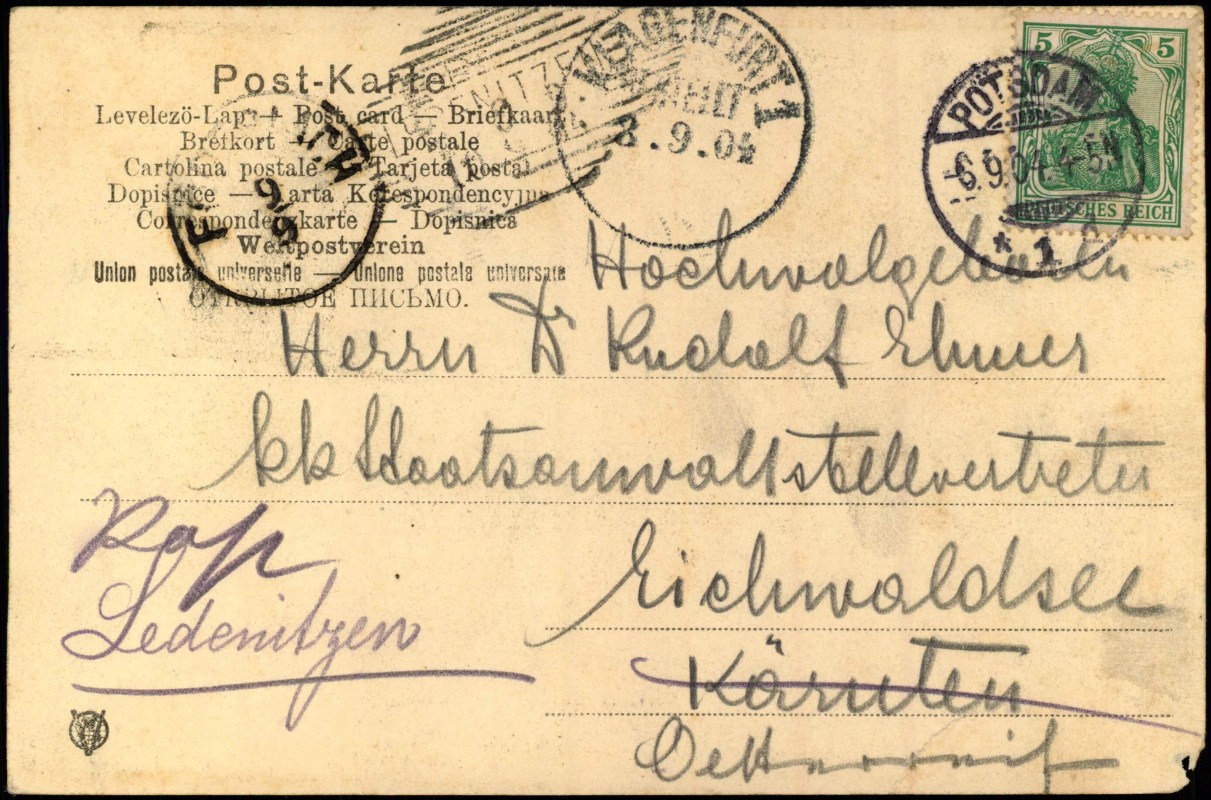 Post-Karte
Levelezö-Lap — Post card — Briefkaart
Brefkort — Carte postale
Cartolina postale — Tarjeta postal
Dopisnice — Karta Korespondencyjna
Correspondenzkarte — Dopisnica
Weltpostverein
Union postale universelle — Unione postale universale
ОТКРЫТОЕ ПИСЬМО.
KLAGENFURT 1
8.9.04
POTSDAM
6.9.04.4-5N
* 1
5 5
DEUTSCHES REICH
9/9
Hochwolgeboren
Herrn Dr Rudolf Ehmer
kk Staatsanwaltstellvertreter
Eichwaldsee
Kärnten
Oesterreich
Ledenitzen